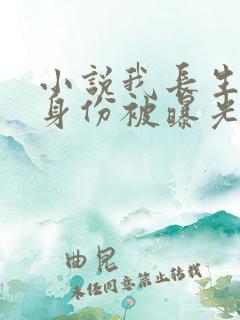 小說我長生
身份被曝光
曲昆
未经同意禁止转载